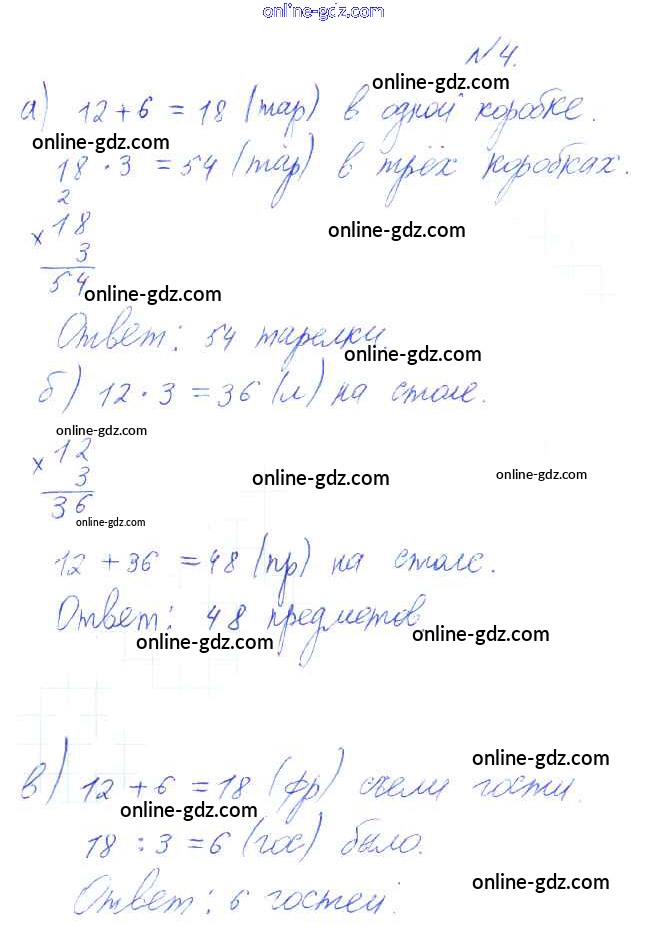 online-gdz.com
№4.
online-gdz.com
а) 12 + 6 = 18 (тар) в одной коробке.
online-gdz.com
18 · 3 = 54 (тар) в трёх коробках.
2
× 18
online-gdz.com
3
54
online-gdz.com
Ответ: 54 тарелки.
online-gdz.com
б) 12 · 3 = 36 (л) на столе.
online-gdz.com
× 12
3
online-gdz.com
online-gdz.com
36
online-gdz.com
12 + 36 = 48 (пр) на столе.
Ответ: 48 предметов
online-gdz.com
online-gdz.com
online-gdz.com
в) 12 + 6 = 18 (фр) съели гости.
online-gdz.com
18 : 3 = 6 (гос) было.
online-gdz.com
Ответ: 6 гостей.